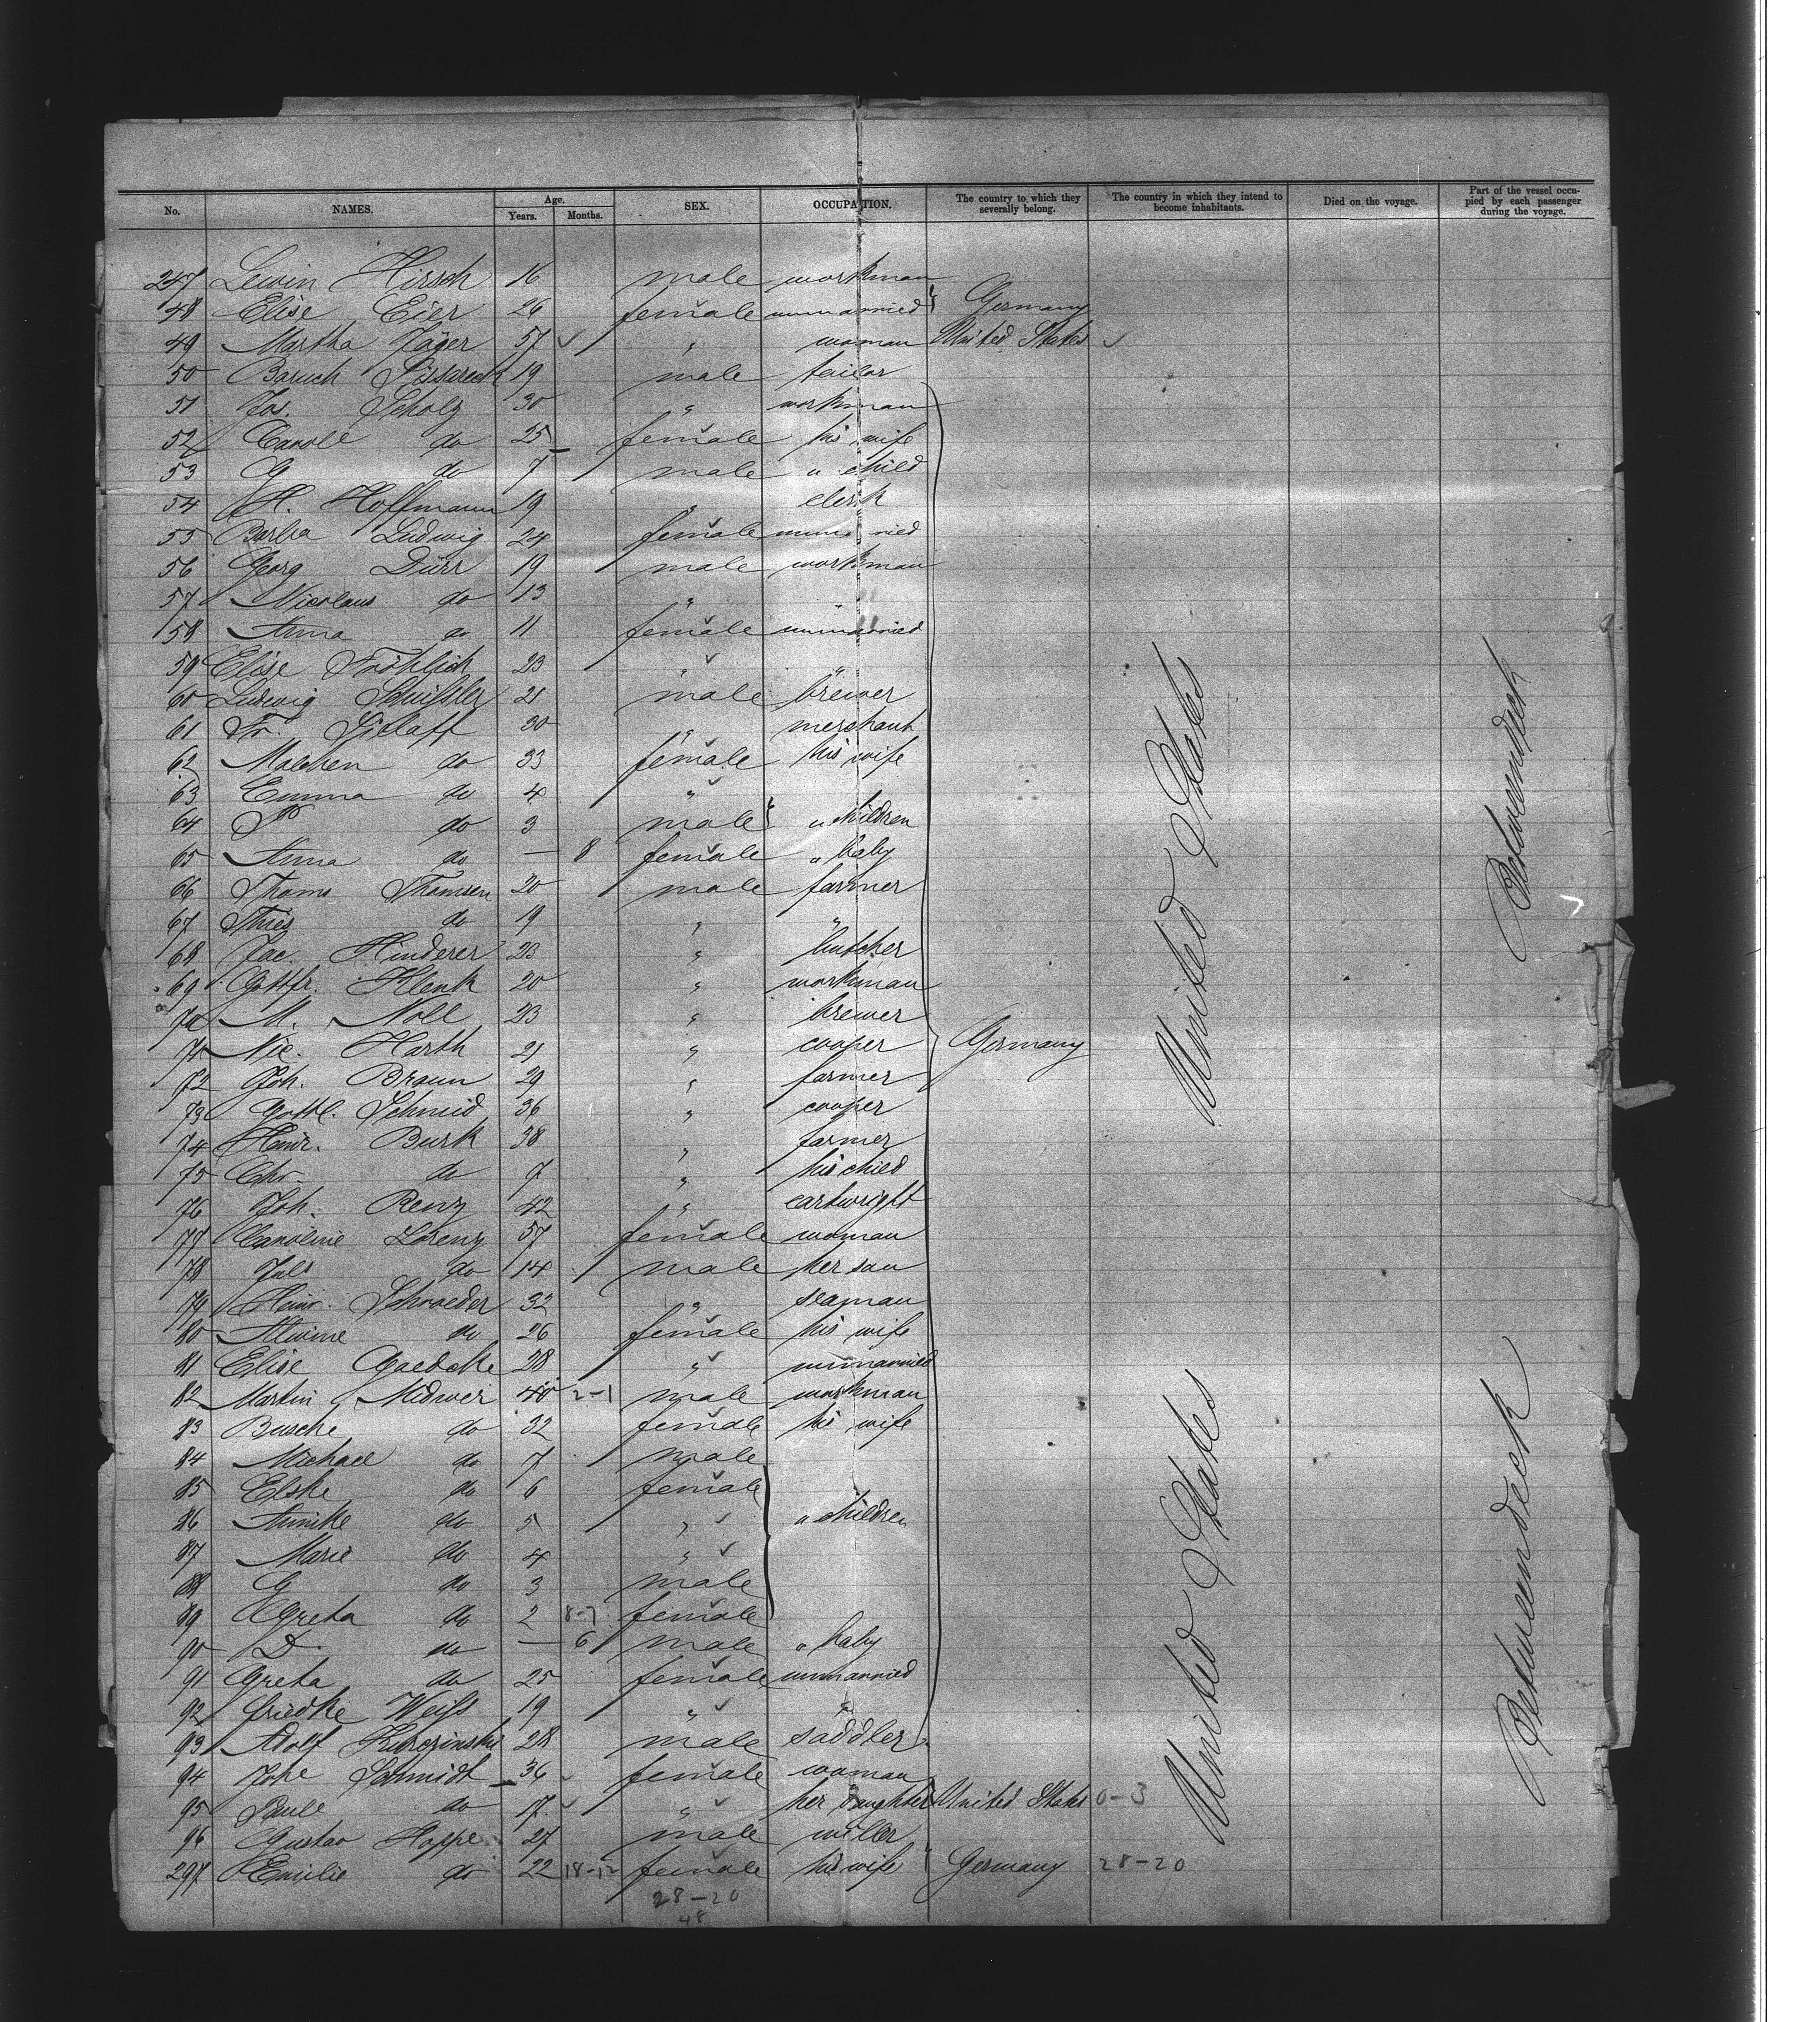 No. NAMES. Age. Years. Months. SEX. OCCUPATION. The country to which they severally belong. The country in which they intend to become inhabitants. Died on the voyage. Part of the vessel occupied by each passenger during the voyage.
247 Lewin Hirsch 16 male workman
48 Elise Eier 26 female unmarried } Germany
49 Martha Jäger 57 " woman United States
50 Baruch 19 male tailor
51 Jos. Scholz 30 " workman
52 Carole do 25 female his wife
53 G do 7 male " child
54 H. Hoffmann 19 " clerk
55 Barba Ludwig 24 female unmarried
56 Georg Dürr 19 male workman
57 Nicolaus do 13 " "
58 Anna do 11 female unmarried
59 Elise Fröhlich 23 " "
60 Ludwig Schuissler 21 male brewer
61 Fr. Siblaff 30 " merchant
62 Malchen do 33 female his wife
63 Emma do 4 "
64 P do 3 male } " children
65 Anna do — 8 female " baby
66 Thoms Thomsen 20 male farmer
67 Thies do 19 " "
68 Jac. Hinderer 23 " butcher
69 Gottfr. Klenk 20 " workman
70 M. Noll 23 " brewer
71 Nic. Harth 21 " cooper Germany
72 Joh. Braun 29 " farmer
73 Gottl. Schmid 36 " cooper
74 Heinr. Burk 38 " farmer
75 Chr. do 7 " his child
76 Joh. Renz 42 " cartwright
77 Caroline Lorenz 57 female woman
78 Juls do 14 male her son
79 Heinr. Schroeder 32 " seaman
80 Alwine do 26 female his wife
81 Elise Gaedcke 28 " unmarried
82 Martin Midwer 40 2-1 male workman
83 Busche do 32 female his wife
84 Michael do 7 male
85 Elske do 6 female
86 Annike do 5 " " children
87 Marie do 4 "
88 G do 3 male
89 Greta do 2 8-7 female
90 D. do — 6 male " baby
91 Greta do 25 female unmarried
92 Friedke Weiss 19 " "
93 Adolf 28 male saddler
94 Johe Schmidt 36 female woman
95 Paule do 17 " her daughter United States 0-3
96 Gustav Hoppe 27 male miller
297 Emilie do 22 18-12 female his wife } Germany 28-20
28-20
48
United States
Betweendeck
United States
Betweendeck